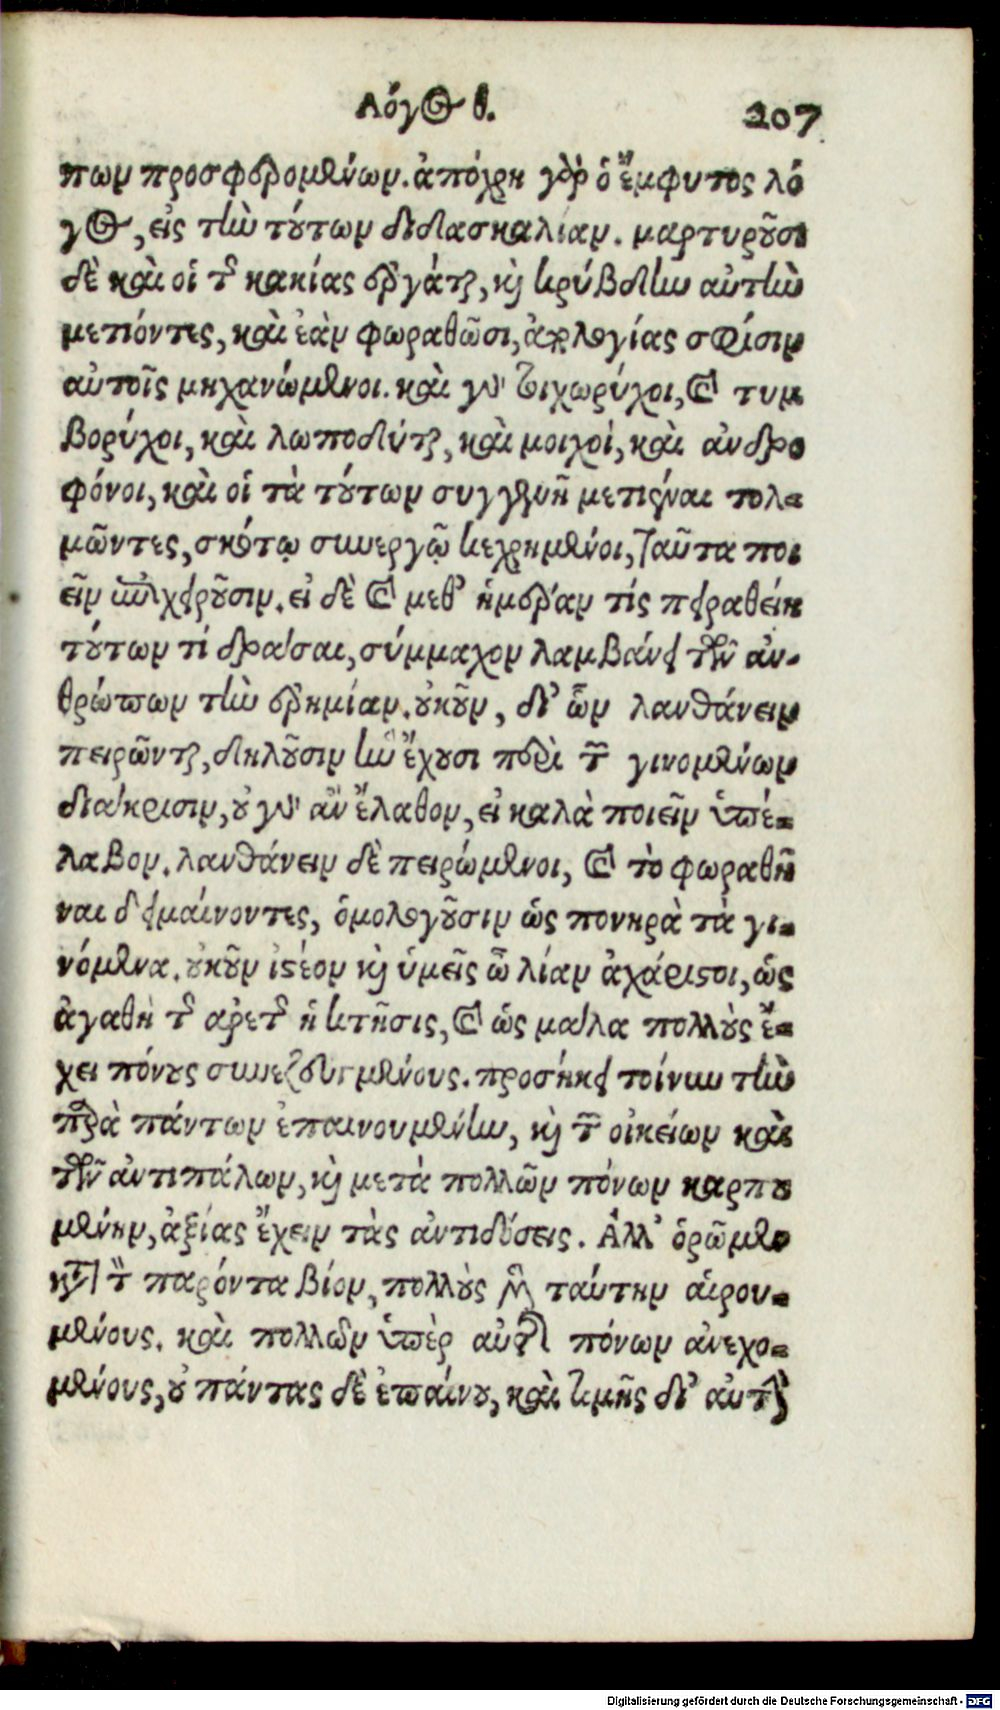 Λόγος θ. 207
πων προσφερομένων. ἀπόχρη γὰρ ὁ ἔμφυτος λό
γος, εἰς τὴν τούτων διδασκαλίαν. μαρτυροῦσι
δὲ καὶ οἱ τῆς κακίας ἐργάται, καὶ κρύβδην αὐτὴν
μετιόντες, καὶ ἐὰν φωραθῶσι, ἀπολογίας σφίσιν
αὐτοῖς μηχανώμενοι. καὶ γὰρ τοιχωρύχοι, καὶ τυμ
βορύχοι, καὶ λωποδύται, καὶ μοιχοὶ, καὶ ἀνδρο
φόνοι, καὶ οἱ τὰ τούτων συγγενῆ μετιέναι τολ-
μῶντες, σκότῳ συνεργῷ κεχρημένοι, ταῦτα ποι
εῖν ἐπιχειροῦσιν. εἰ δὲ καὶ μεθ' ἡμέραν τίς πειραθείη
τούτων τί δράσαι, σύμμαχον λαμβάνει τῶν ἀν-
θρώπων τὴν ἐρημίαν. οὐκοῦν, δι' ὧν λανθάνειν
πειρῶνται, δηλοῦσιν ἣν ἔχουσι περὶ τῶν γινομένων
διάκρισιν, οὐ γὰρ ἂν ἔλαθον, εἰ καλὰ ποιεῖν ὑπέ-
λαβον. λανθάνειν δὲ πειρώμενοι, καὶ τὸ φωραθῆ
ναι δειμαίνοντες, ὁμολογοῦσιν ὡς πονηρὰ τὰ γι-
νόμενα. οὐκοῦν ἰστέον καὶ ὑμεῖς ὦ λίαν ἀχάριστοι, ὡς
ἀγαθὴ τῆς ἀρετῆς ἡ κτῆσις, καὶ ὡς μάλα πολλοὺς ἔ-
χει πόνους συνεζευγμένους. προσήκει τοίνυν τὴν
παρὰ πάντων ἐπαινουμένην, καὶ τῶν οἰκείων καὶ
τῶν ἀντιπάλων, καὶ μετὰ πολλῶν πόνων καρπου
μένην, ἀξίας ἔχειν τὰς ἀντιδόσεις. Ἀλλ' ὁρῶμεν
κατὰ τὸν παρόντα βίον, πολλοὺς μὲν ταύτην αἱρου-
μένους. καὶ πολλῶν ὑπὲρ αὐτῆς πόνων ἀνεχο-
μένους, οὐ πάντας δὲ ἐπαίνου, καὶ τιμῆς δι' αὐτὴν
Digitalisierung gefördert durch die Deutsche Forschungsgemeinschaft - DFG